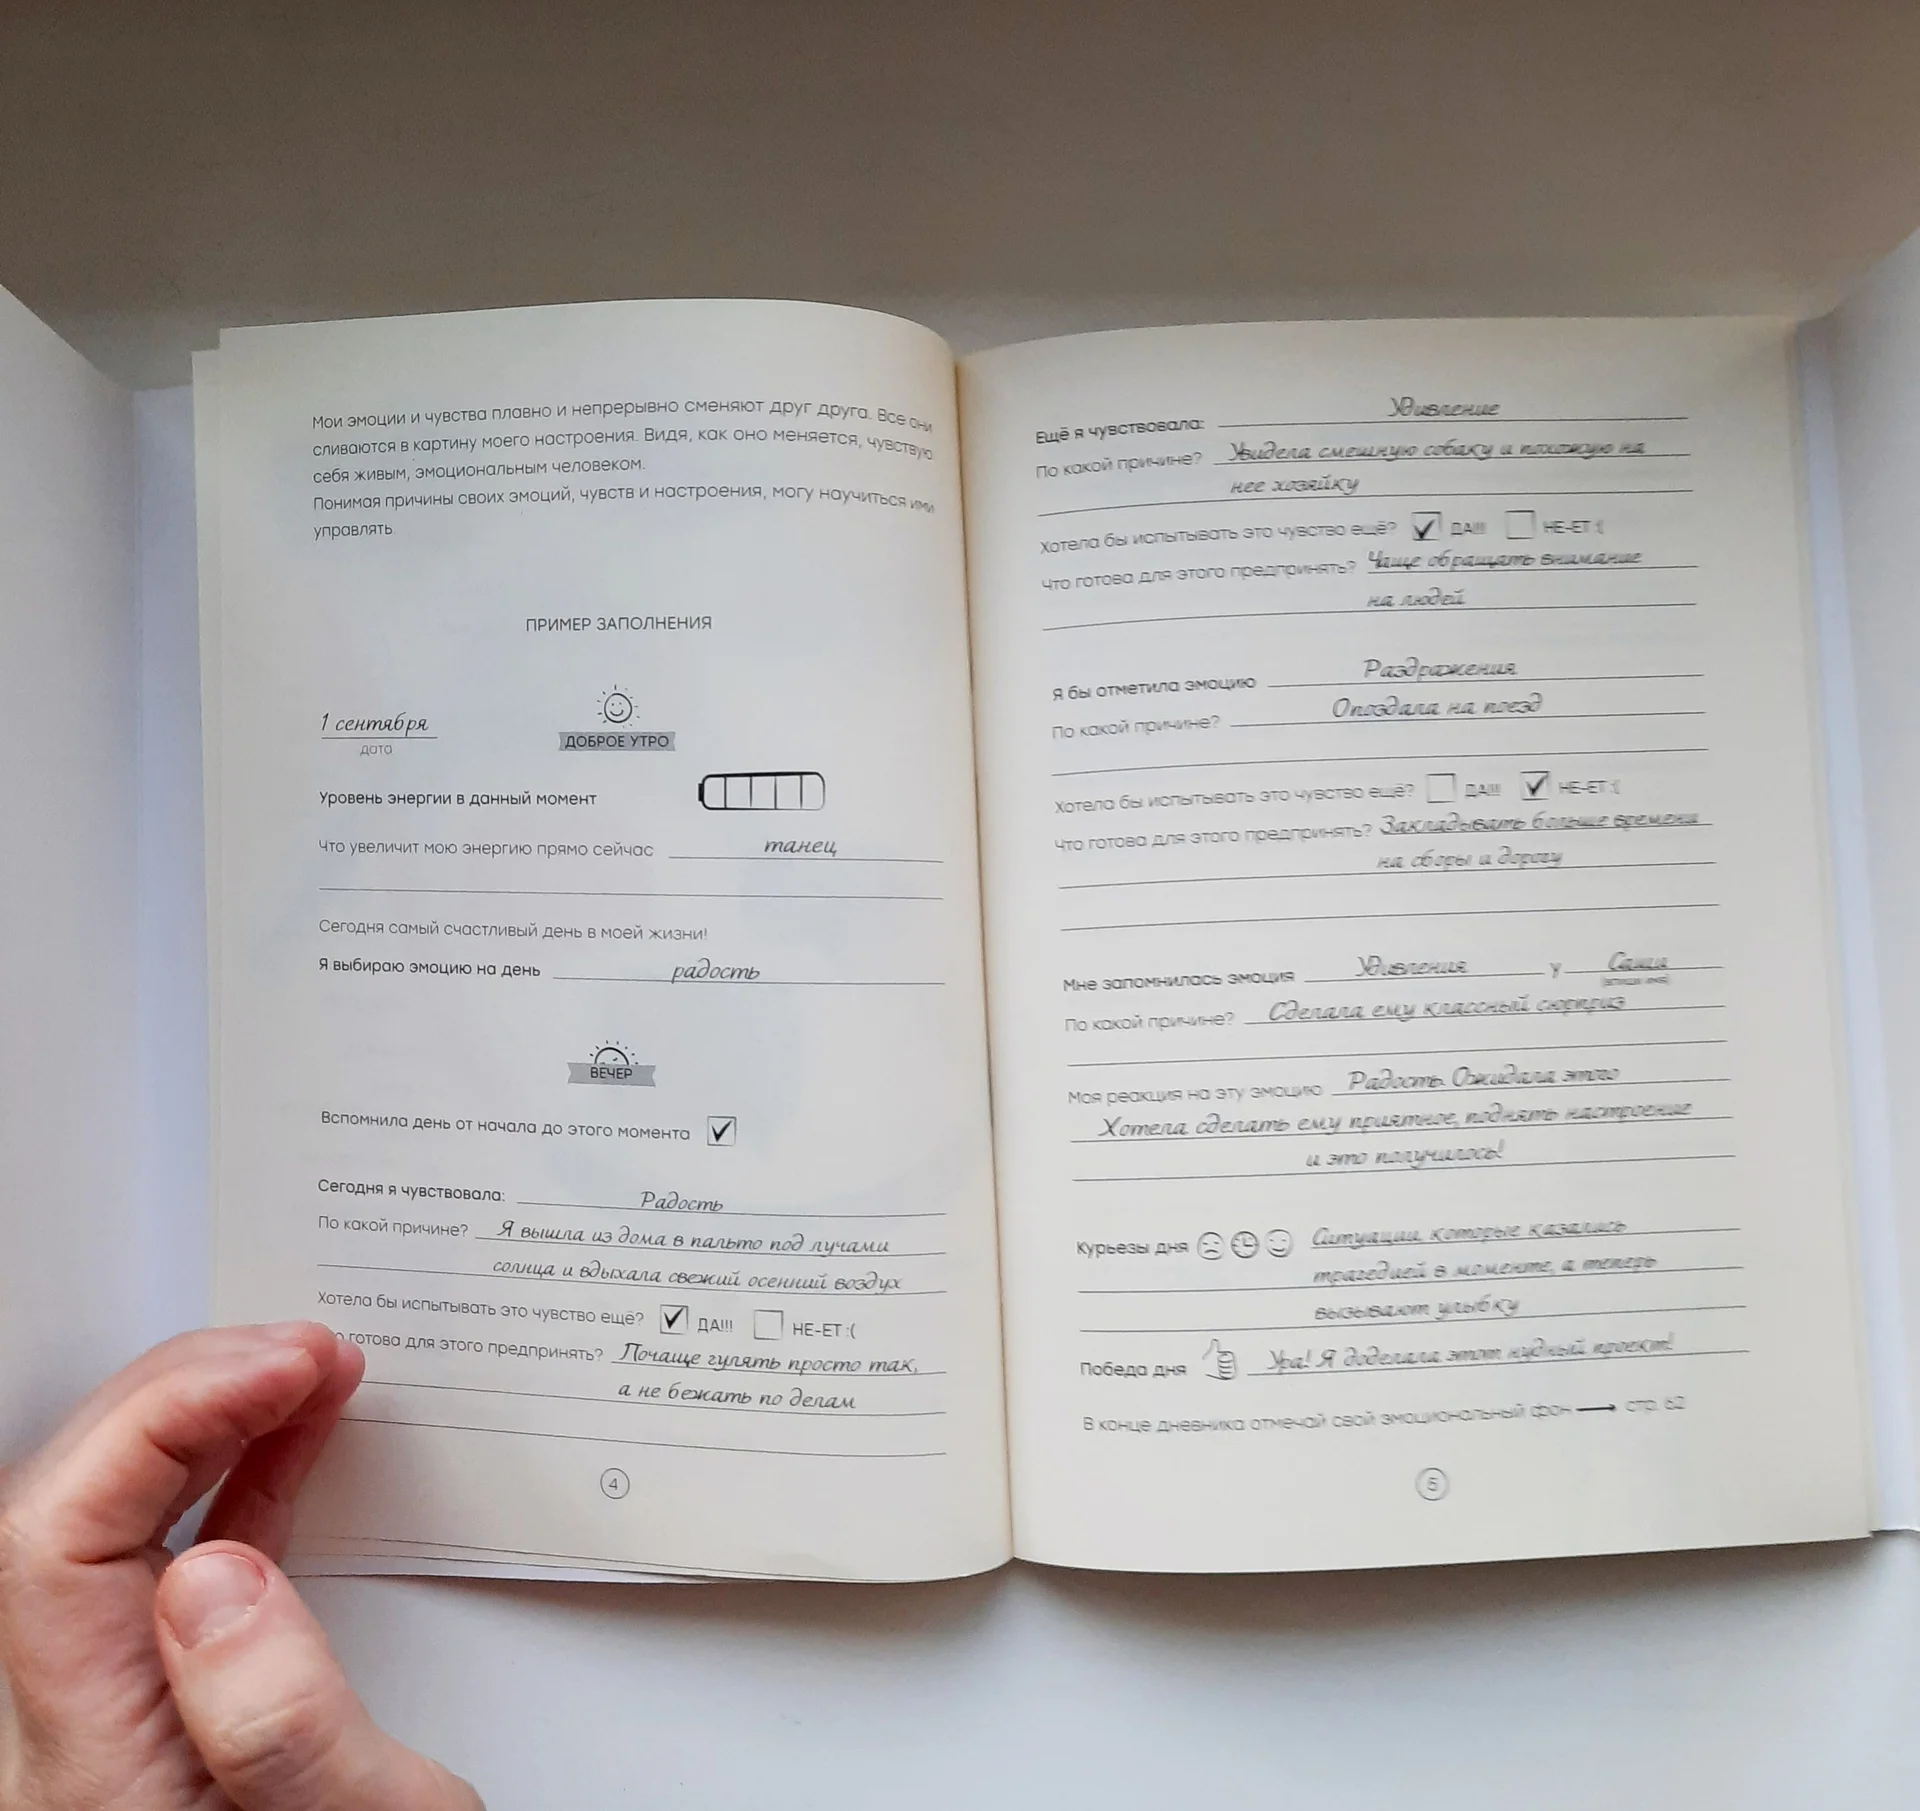 Мои эмоции и чувства плавно и непрерывно сменяют друг друга. Все они
сливаются в картину моего настроения. Видя, как оно меняется, чувствую
себя живым, эмоциональным человеком.
Понимая причины своих эмоций, чувств и настроения, могу научиться ими
управлять.
ПРИМЕР ЗАПОЛНЕНИЯ
1 сентября
дата
ДОБРОЕ УТРО
Уровень энергии в данный момент
Что увеличит мою энергию прямо сейчас танец
Сегодня самый счастливый день в моей жизни!
Я выбираю эмоцию на день радость
ВЕЧЕР
Вспомнила день от начала до этого момента
Сегодня я чувствовала: Радость
По какой причине? Я вышла из дома в пальто под лучами
солнца и вдыхала свежий осенний воздух
Хотела бы испытывать это чувство ещё? ДА!!! НЕ-ЕТ :(
о готова для этого предпринять? Почаще гулять просто так,
а не бежать по делам
4
Ещё я чувствовала: Удивление
По какой причине? Увидела смешную собаку и похожую на
нее хозяйку
Хотела бы испытывать это чувство ещё? ДА!!! НЕ-ЕТ :(
Что готова для этого предпринять? Чаще обращать внимание
на людей
Я бы отметила эмоцию Раздражения
По какой причине? Опоздала на поезд
Хотела бы испытывать это чувство ещё? ДА!!! НЕ-ЕТ :(
Что готова для этого предпринять? Закладывать больше времени
на сборы и дорогу
Мне запомнилась эмоция Удивления у Саши
(впиши имя)
По какой причине? Сделала ему классный сюрприз
Моя реакция на эту эмоцию Радость. Ожидала этого
Хотела сделать ему приятное, поднять настроение
и это получилось!
Курьезы дня Ситуации, которые казались
трагедией в моменте, а теперь
вызывают улыбку
Победа дня Ура! Я доделала этот нудный проект!
В конце дневника отмечай свой эмоциональный фон → стр. 62
5